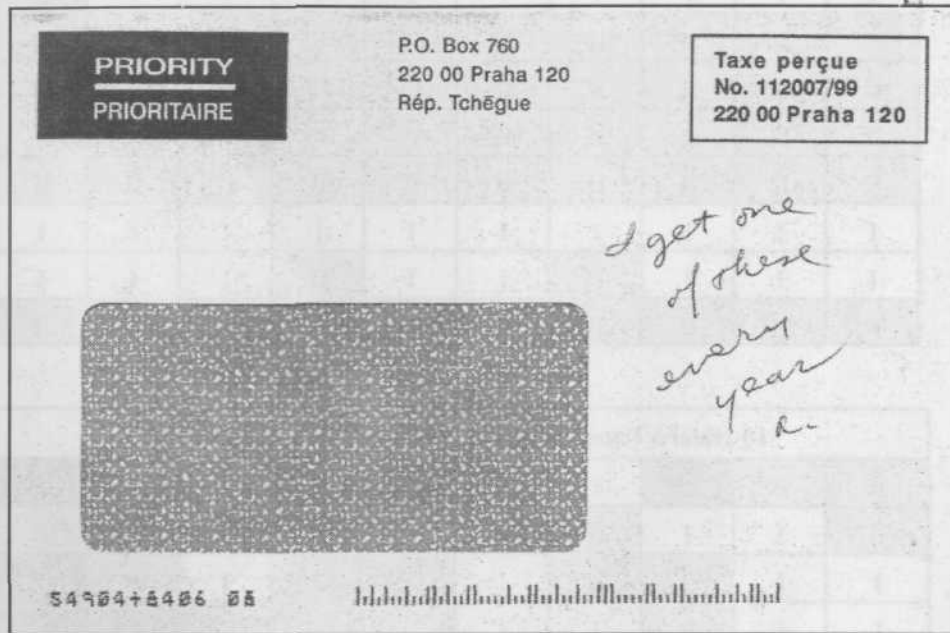 PRIORITY
PRIORITAIRE
P.O. Box 760
220 00 Praha 120
Rép. Tchēgue
Taxe perçue
No. 112007/99
220 00 Praha 120
I get one
of these
every
year
R.